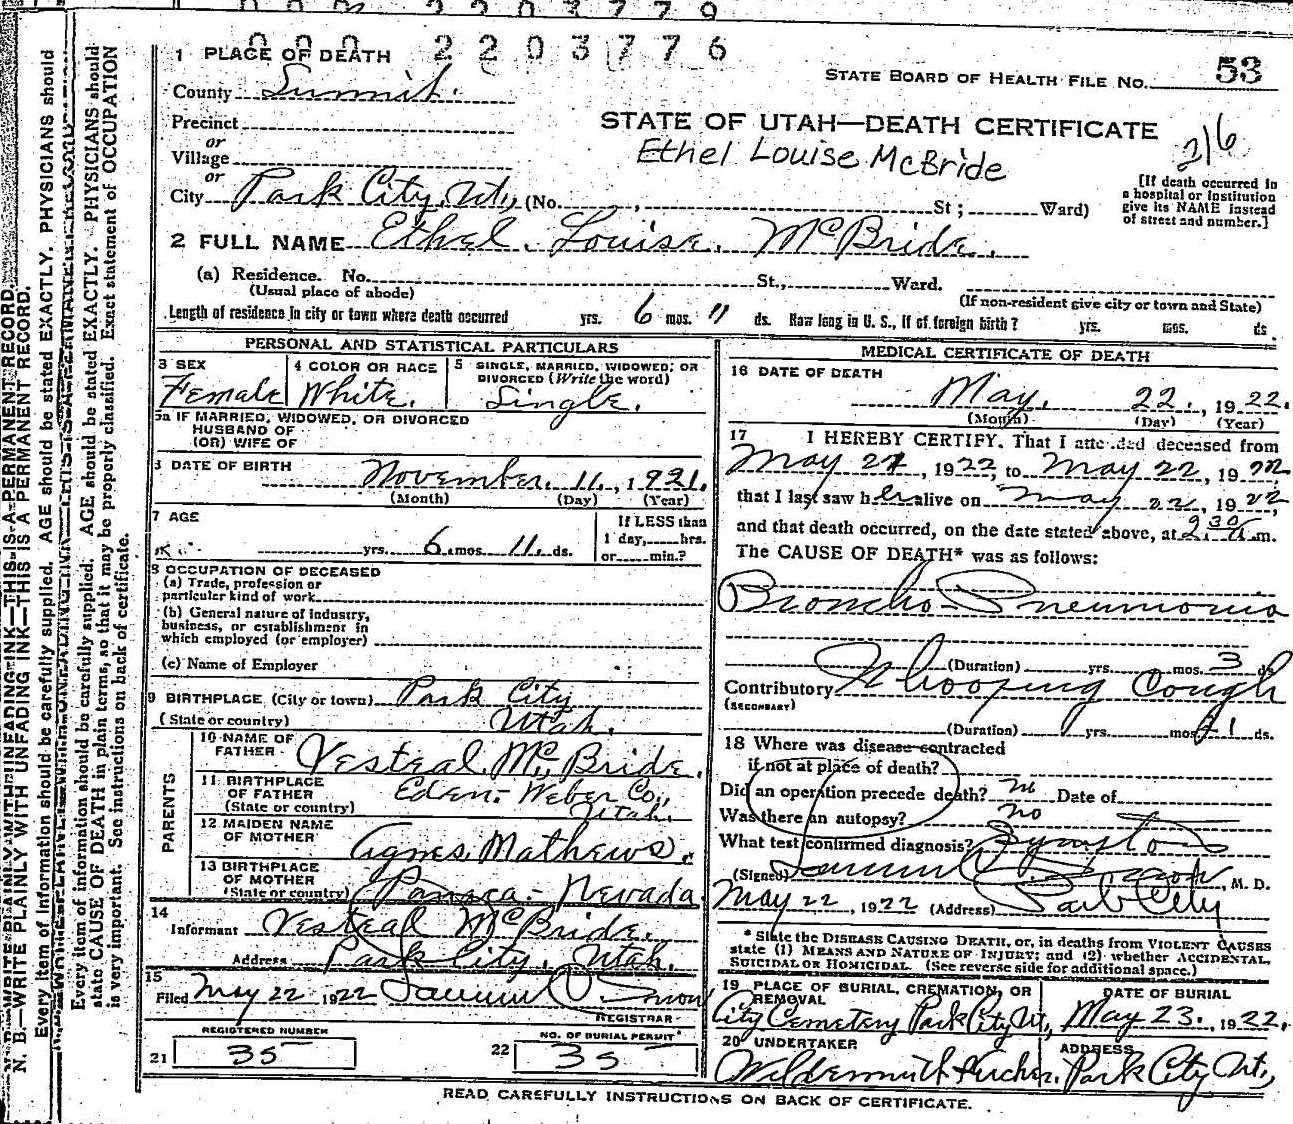 000 2203779
000 2203776
1 PLACE OF DEATH
STATE BOARD OF HEALTH FILE No. 53
County Summit.
STATE OF UTAH—DEATH CERTIFICATE
Precinct
Ethel Louise McBride
216
or
Village
or
City Park City, Ut., (No. , St ; Ward)
[If death occurred in a hospital or institution give its NAME instead of street and number.]
2 FULL NAME Ethel. Louise. McBride.
(a) Residence. No. St., Ward.
(Usual place of abode) (If non-resident give city or town and State)
Length of residence in city or town where death occurred yrs. 6 mos. 11 ds. How long in U. S., if of foreign birth? yrs. mos. ds
PERSONAL AND STATISTICAL PARTICULARS
3 SEX
Female
4 COLOR OR RACE
White.
5 SINGLE, MARRIED, WIDOWED, OR
DIVORCED (Write the word)
Single.
5a IF MARRIED, WIDOWED, OR DIVORCED
HUSBAND OF
(OR) WIFE OF
DATE OF BIRTH November. 11., 1921.
(Month) (Day) (Year)
7 AGE
yrs. 6 mos. 11. ds.
If LESS than
1 day, hrs.
or min.?
8 OCCUPATION OF DECEASED
(a) Trade, profession or
particular kind of work
(b) General nature of industry,
business, or establishment in
which employed (or employer)
(c) Name of Employer
9 BIRTHPLACE (City or town) Park City
(State or country) Utah.
PARENTS
10 NAME OF
FATHER Vesteal. McBride.
11 BIRTHPLACE
OF FATHER Eden.- Weber Co.,
(State or country) Utah.
12 MAIDEN NAME
OF MOTHER Agnes Mathews.
13 BIRTHPLACE
OF MOTHER
(State or country) Panaca - Nevada.
14
Informant Vesteal McBride.
Address Park City, Utah.
15
Filed May 22 1922 Samuel Snow
REGISTRAR
REGISTERED NUMBER
21 35
NO. OF BURIAL PERMIT
22 35
MEDICAL CERTIFICATE OF DEATH
16 DATE OF DEATH
May. 22., 1922.
(Month) (Day) (Year)
17 I HEREBY CERTIFY. That I attended deceased from
May 21, 1922, to May 22, 1922
that I last saw her alive on May 22, 1922,
and that death occurred, on the date stated above, at 2:30 m.
The CAUSE OF DEATH* was as follows:
Broncho-Pneumonia
(Duration) yrs. mos. 3 ds
Contributory Whooping Cough
(SECONDARY)
(Duration) yrs. mos. 21 ds.
18 Where was disease contracted
if not at place of death?
Did an operation precede death? no Date of
Was there an autopsy? no
What test confirmed diagnosis?
(Signed) Samuel Snow, M. D.
May 22, 1922 (Address) Park City
* State the DISEASE CAUSING DEATH, or, in deaths from VIOLENT CAUSES
state (1) MEANS AND NATURE OF INJURY; and (2) whether ACCIDENTAL,
SUICIDAL OR HOMICIDAL. (See reverse side for additional space.)
19 PLACE OF BURIAL, CREMATION, OR
REMOVAL
City Cemetery Park City Ut.,
DATE OF BURIAL
May 23., 1922.
20 UNDERTAKER
ADDRESS
Park City Ut.,
READ CAREFULLY INSTRUCTIONS ON BACK OF CERTIFICATE.
N. B.—WRITE PLAINLY WITH UNFADING INK—THIS IS A PERMANENT RECORD.
Every item of information should be carefully supplied. AGE should be stated EXACTLY. PHYSICIANS should
Every item of information should be carefully supplied. AGE should be stated EXACTLY. PHYSICIANS should
state CAUSE OF DEATH in plain terms, so that it may be properly classified. Exact statement of OCCUPATION
is very important. See instructions on back of certificate.